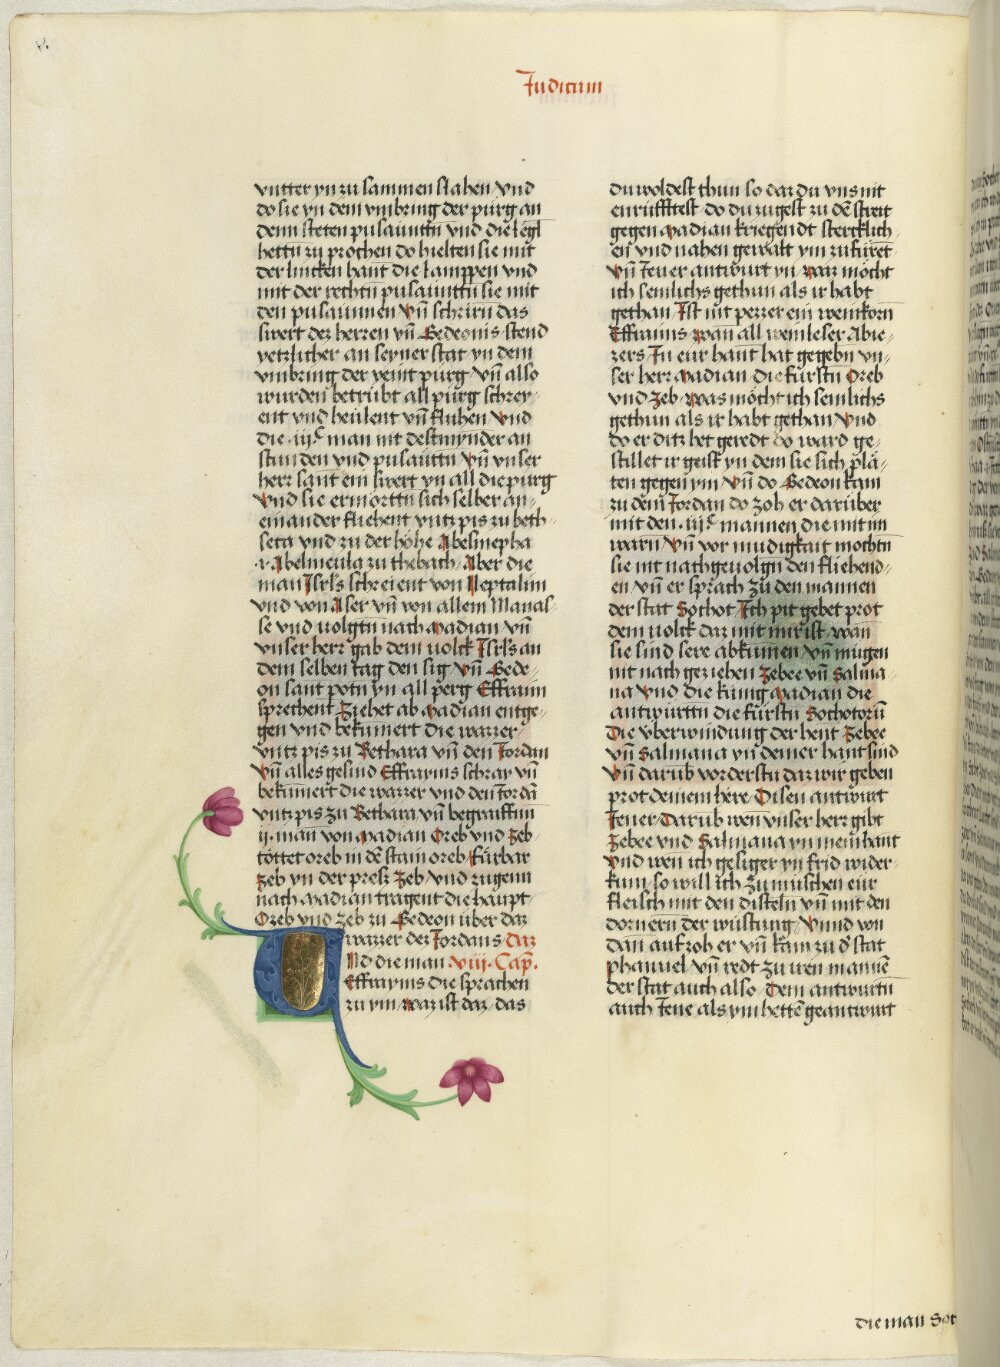 Judicum
vntter yn zu sammen slahen vnd
do sie yn dem vmbring der purg an
denn steten pusauntn vnd die legl
hettn zu prochen do hielten sie mit
der lincken hant die lamppen vnd
mit der rechtn pusaunttn sie mit
den pusaunnen Vn̄ schrirn das
swert dez herren vn̄ Gedeonis stend
yetzlicher an seyner stat yn dem
vmbring der veint purg Vn̄ also
wurden betrubt all purg schrey-
ent vnd heulent vn̄ fluhen Vnd
die .iijc man nit destmynder an
stunden vnd pusauttn Vn̄ vnser
herr sant ein swert yn all die purg
Vnd sie ermorttn sich selber an-
einander fliehent vntz pis zu beth-
seca vnd zu der höhe Abelmepha
.r. Abelmeula zu thebach Aber die
man Jsrl̄s schreient von Neptalim
vnd von Aser vn̄ von allem Manas-
se vnd volgtn nach Madian vn̄
vnser herr gab dem volck Jsrl̄s an
dem selben tag den sig Vn̄ Gede-
on sant potn yn all perg Effraim
sprechent Ziehet ab Madian entge-
gen vnd bekumert die wazzer
vntz pis zu Bethara vn̄ den Jordan
Vn̄ alles gesind Effrayms schray vn̄
bekumert die wazzer vnd den Jordā
vntz pis zu Bethara vn̄ begraiffnn
ij. man von Madian Oreb vnd Zeb
tottet oreb in dē stain oreb Fürbaz
Zeb yn der presz Zeb vnd zugenn
nach Madian tragent die haupt
Ozeb vnd Zeb zu Gedeon über daz
wazzer dez Jordans Daz
Nd die man viij. Cap̄.
Effrayms die sprachen
zu ym Waz ist daz das
du woldest thun so daz du vns nit
enrufftest do du zugest zu dē streit
gegen Madian kriegendt stercklich
en vnd nahen gewalt ym zufüret
Vn̄ Jener antwurt yn Waz mocht
ich semlichs gethun als ir habt
gethan Jst nit pezzer ein weinkorn
Effraims Wan all weinleser Abie-
zers Jn eur hant hat gegebn vn-
ser herr Madian die fürstn Oreb
vnd Zeb Was möcht ich semlichs
gethun als ir habt gethan Vnd
do er ditz het geredt do ward ge-
stillet ir geist yn dem sie sich plä-
ten gegen ym Vn̄ do Gedeon kam
zu dem Jordan do zoh er darüber
mit den .iijc mannen die mit im
warn Vn̄ vor mudigkait mochtn
sie nit nachgevolgn den fliehend-
en vn̄ er sprach zu den mannen
der stat Sothot Jch pit gebet prot
dem volck daz mit mir ist wan
sie sind sere abkumen vn̄ mugen
nit nach geziehen Zebee vn̄ Salma-
na Vnd die kunig Madian die
antwurttn die fürstn Sothotorū
Die vberwindung der hent Zebee
vn̄ Salmana yn deiner hant sind
Vn̄ darub vorderstu daz wir geben
prot deinem here Disen antwurt
Jener Darub wen vnser herz gibt
Zebee vnd Salmana yn mein hant
Vnd wen ich gesiger yn frid wider-
kum so will ich zu muschen eur
fleisch mit den disteln vn̄ mit den
dornern der wustung Vnnd von
dan aufzoh er vn̄ kam zu d' stat
phanuel vn̄ redt zu iren mannē
der stat auch also Dem antwurtn
auch Jene als ym hettē geantwurt
die man Sot